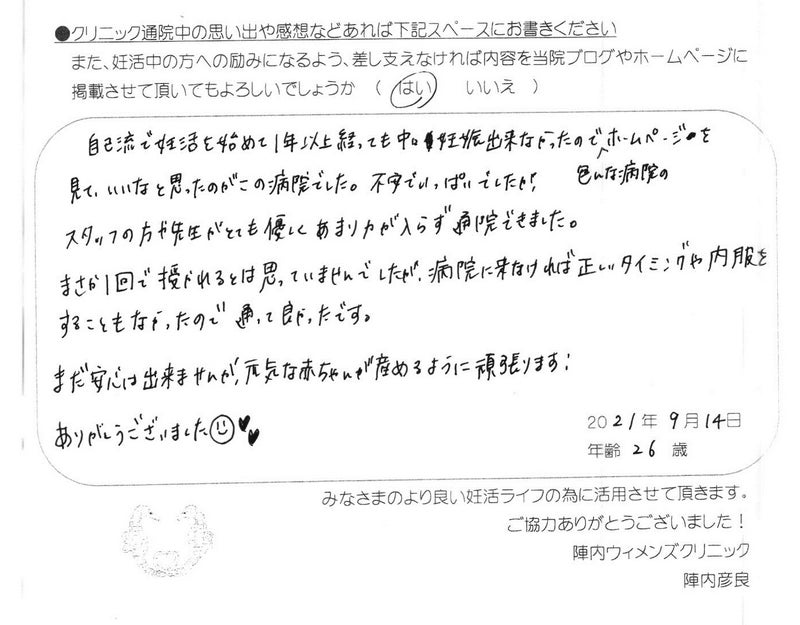 ●クリニック通院中の思い出や感想などあれば下記スペースにお書きください
また、妊活中の方への励みになるよう、差し支えなければ内容を当院ブログやホームページに
掲載させて頂いてもよろしいでしょうか ( はい いいえ )
自己流で妊活を始めて1年以上経っても中々妊娠出来なかったのでホームページを
色んな病院の
見て、いいなと思ったのがこの病院でした。不安でいっぱいでしたが、
スタッフの方や先生がとても優しくあまり力が入らず通院できました。
まさか1回で授かれるとは思っていませんでしたが、病院に来なければ正しいタイミングや内服を
することもなかったので通って良かったです。
まだ安心は出来ませんが、元気な赤ちゃんが産めるように頑張ります!
ありがとうございました
2021年 9月14日
年齢 26 歳
みなさまのより良い妊活ライフの為に活用させて頂きます。
ご協力ありがとうございました!
陣内ウィメンズクリニック
陣内彦良